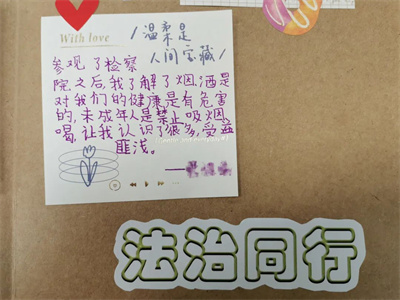 With love
/温柔是
人间宝藏/
参观了检察
院之后,我了解了烟,酒是
对我们的健康是有危害
的,未成年人是禁止吸烟,
喝,让我认识了很多,受益
匪浅。
法治同行